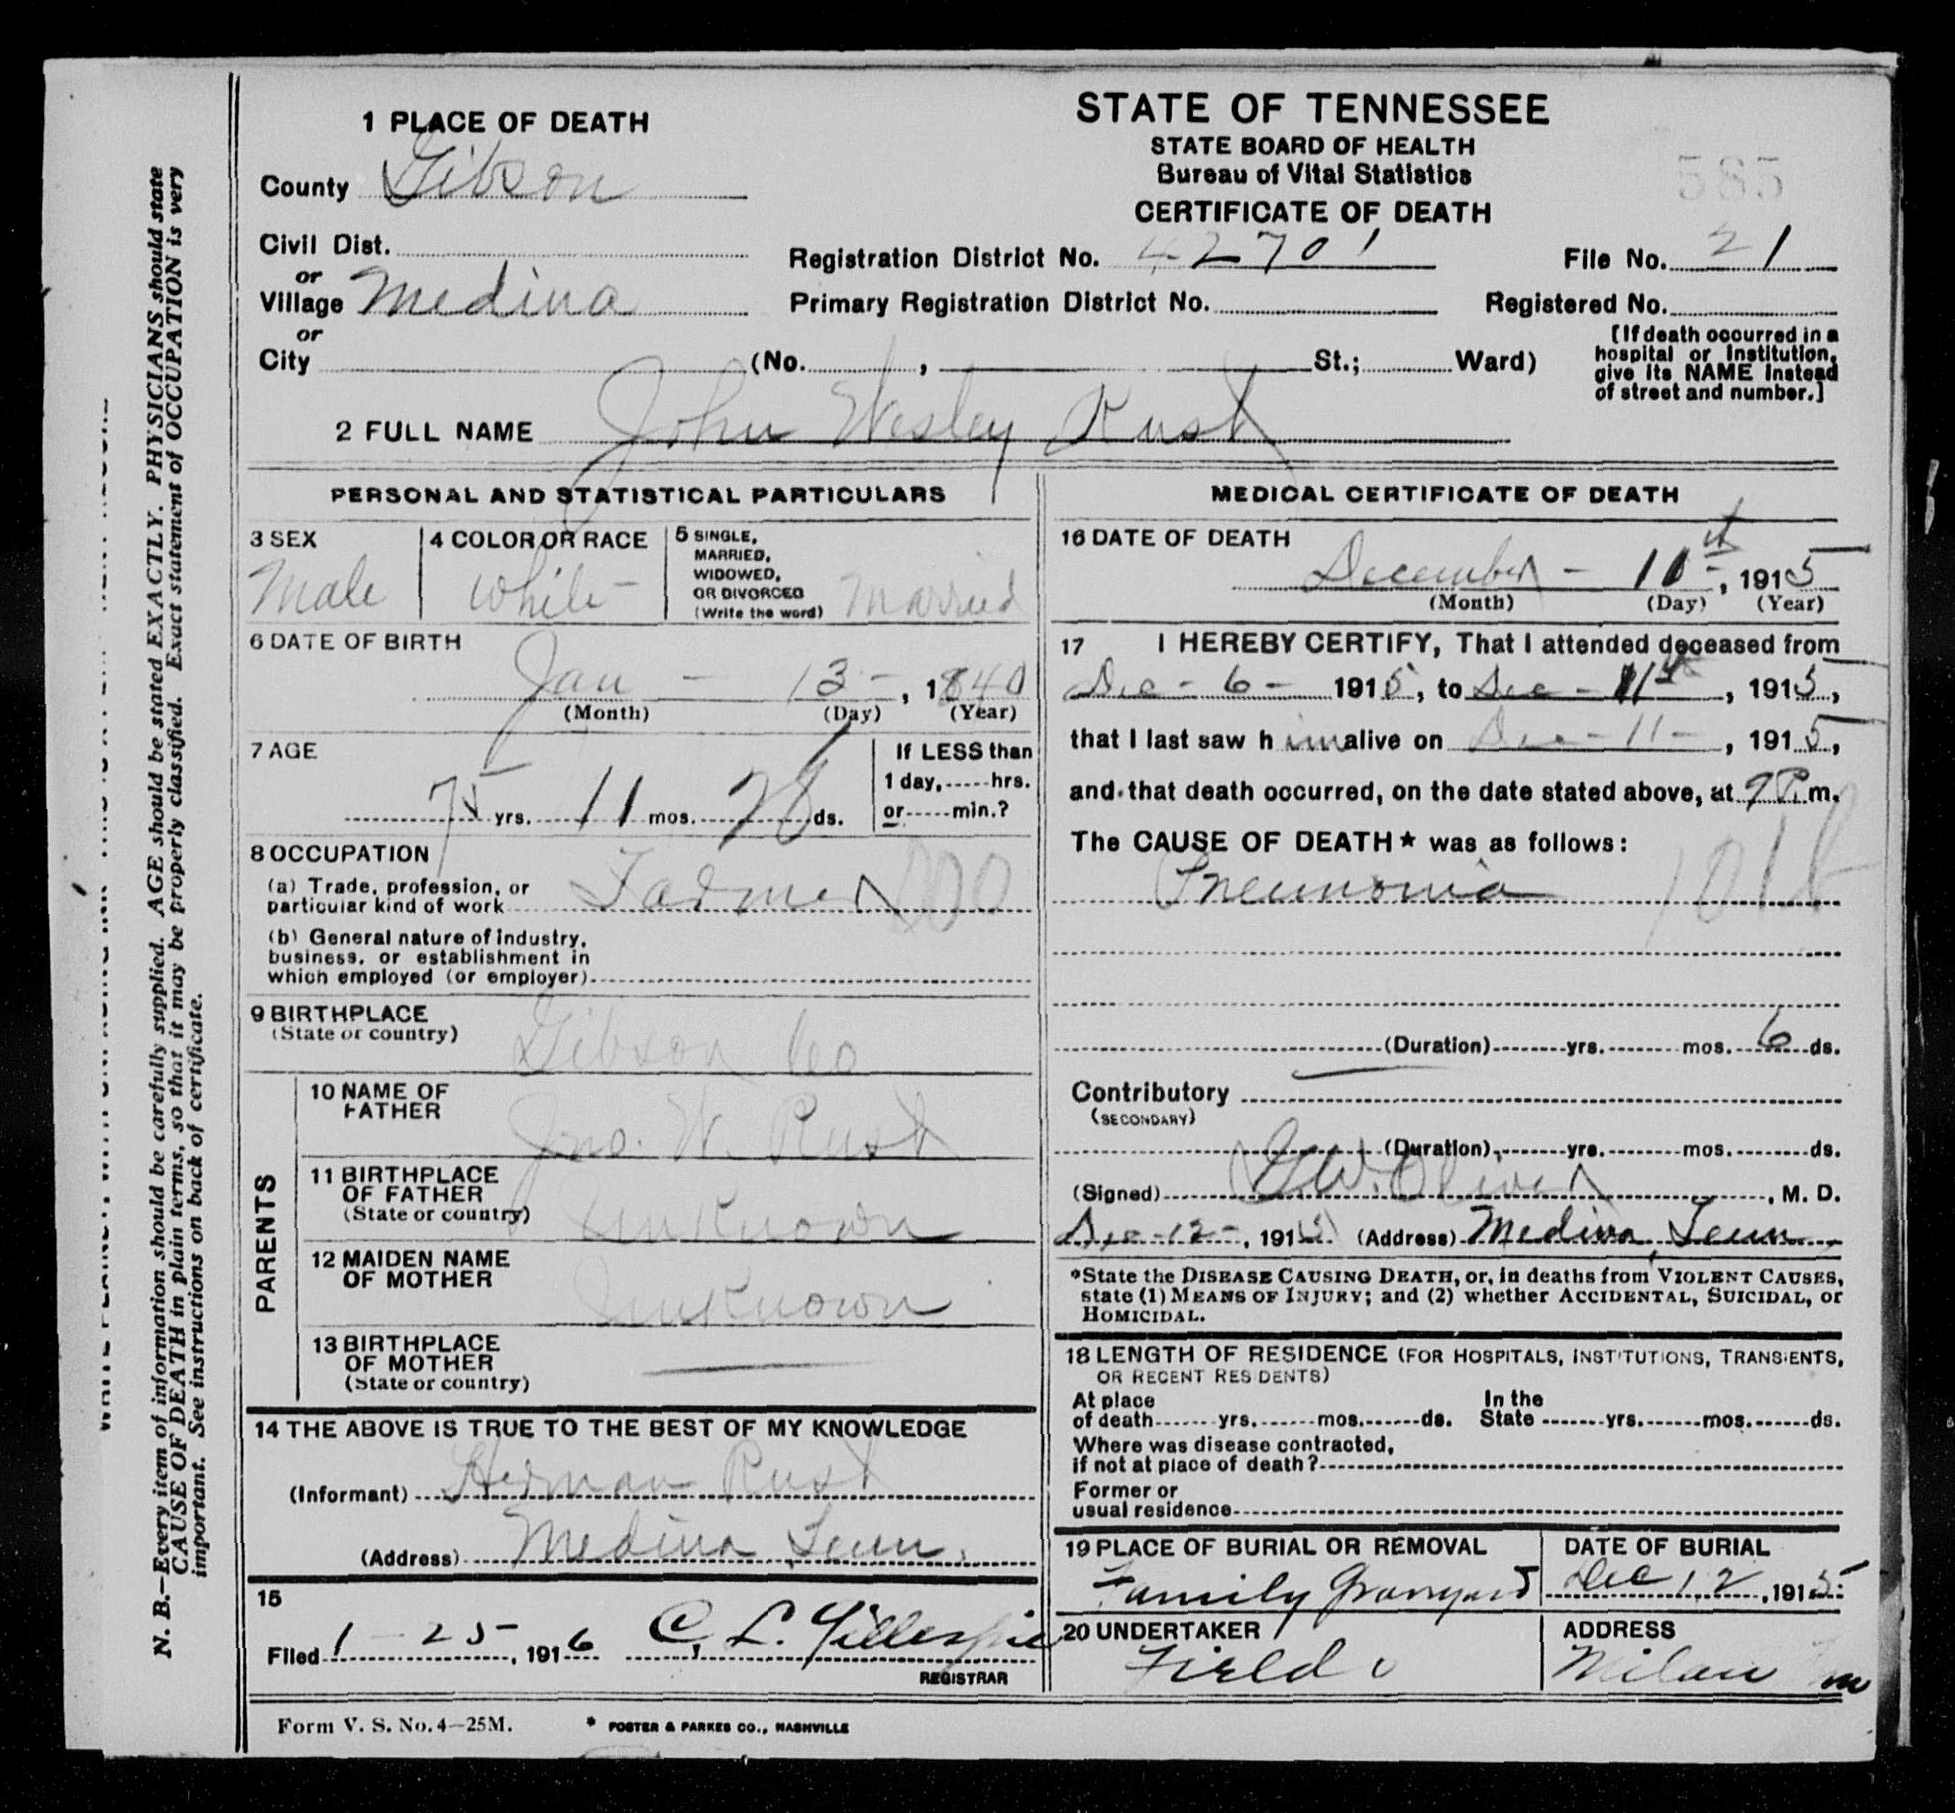 1 PLACE OF DEATH
County Gibson
Civil Dist.
or
Village Medina
or
City (No. , St.; Ward)
STATE OF TENNESSEE
STATE BOARD OF HEALTH
Bureau of Vital Statistics
CERTIFICATE OF DEATH
585
Registration District No. 42701
File No. 21
Primary Registration District No.
Registered No.
[If death occurred in a
hospital or Institution,
give its NAME instead
of street and number.]
2 FULL NAME John Wesley Rust
PERSONAL AND STATISTICAL PARTICULARS
3 SEX
Male
4 COLOR OR RACE
White
5 SINGLE,
MARRIED,
WIDOWED,
OR DIVORCED
(Write the word) Married
6 DATE OF BIRTH
Jan - 13 -, 1840
(Month) (Day) (Year)
7 AGE
75 yrs. 11 mos. 28 ds.
If LESS than
1 day, hrs.
or min.?
8 OCCUPATION
(a) Trade, profession, or
particular kind of work Farmer 000
(b) General nature of industry,
business, or establishment in
which employed (or employer)
9 BIRTHPLACE
(State or country)
Gibson Co
PARENTS
10 NAME OF
FATHER
Jno. W. Rust
11 BIRTHPLACE
OF FATHER
(State or country)
unKnown
12 MAIDEN NAME
OF MOTHER
unKnown
13 BIRTHPLACE
OF MOTHER
(State or country)
14 THE ABOVE IS TRUE TO THE BEST OF MY KNOWLEDGE
(Informant) Herman Rust
(Address) Medina Tenn.
15
Filed 1 - 25 -, 1916 C. L. Gillespie
REGISTRAR
MEDICAL CERTIFICATE OF DEATH
16 DATE OF DEATH
December -, 1915
(Month) (Day) (Year)
17 I HEREBY CERTIFY, That I attended deceased from
Dec - 6 - 1915, to Dec - 11th, 1915,
that I last saw h im alive on Dec - 11 -, 1915,
and that death occurred, on the date stated above, at 9 P. m.
The CAUSE OF DEATH* was as follows:
Pneumonia
(Duration) yrs. mos. 6 ds.
Contributory
(SECONDARY)
(Duration) yrs. mos. ds.
(Signed) W. Oliver, M. D.
Dec - 12 -, 1915 (Address) Medina, Tenn
*State the DISEASE CAUSING DEATH, or, in deaths from VIOLENT CAUSES,
state (1) MEANS OF INJURY; and (2) whether ACCIDENTAL, SUICIDAL, or
HOMICIDAL.
18 LENGTH OF RESIDENCE (FOR HOSPITALS, INSTITUTIONS, TRANSIENTS,
OR RECENT RESIDENTS)
At place
of death yrs. mos. ds.
In the
State yrs. mos. ds.
Where was disease contracted,
if not at place of death?
Former or
usual residence
19 PLACE OF BURIAL OR REMOVAL
Family Graveyard
DATE OF BURIAL
Dec 12, 1915
20 UNDERTAKER
Field
ADDRESS
Milan
Form V. S. No. 4—25M.
* FOSTER & PARKES CO., NASHVILLE
N. B.—Every item of information should be carefully supplied. AGE should be stated EXACTLY. PHYSICIANS should state
CAUSE OF DEATH in plain terms, so that it may be properly classified. Exact statement of OCCUPATION is very
important. See instructions on back of certificate.